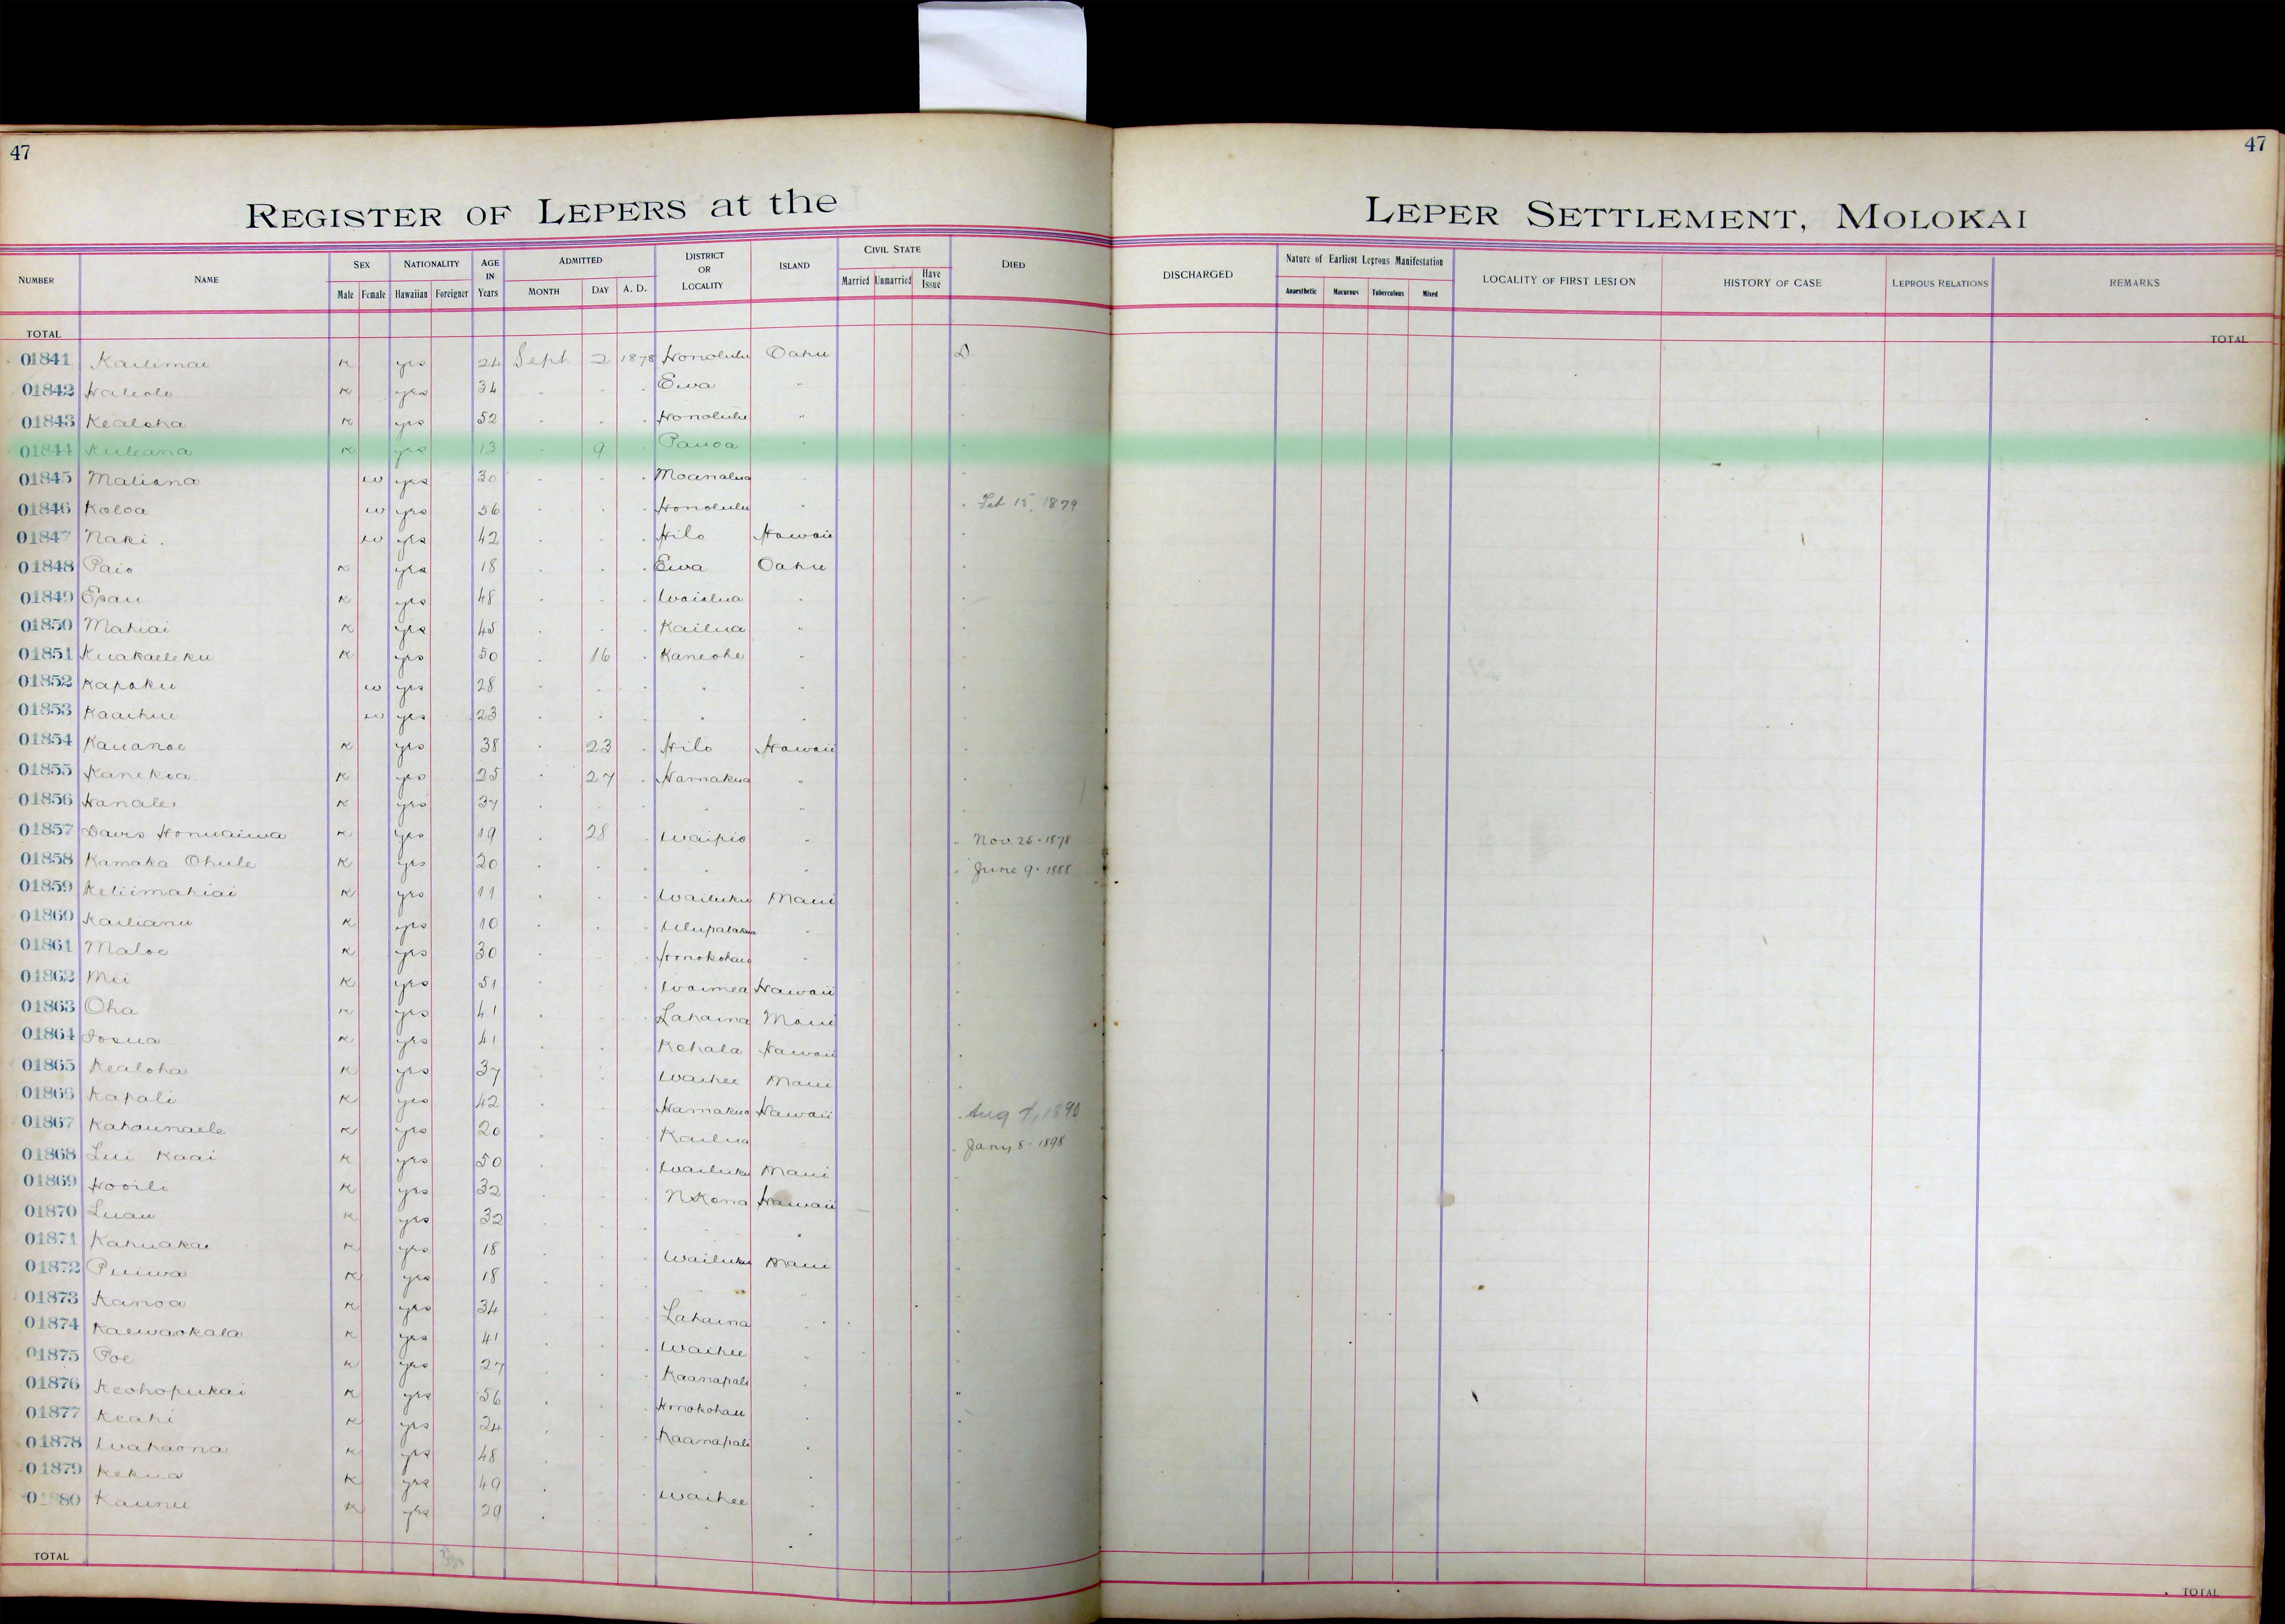 47
47
REGISTER OF LEPERS at the
LEPER SETTLEMENT, MOLOKAI
NUMBER NAME SEX NATIONALITY AGE IN Years ADMITTED DISTRICT OR LOCALITY ISLAND CIVIL STATE DIED
Male Female Hawaiian Foreigner MONTH DAY A. D. Married Unmarried Have Issue
DISCHARGED Nature of Earliest Leprous Manifestation LOCALITY OF FIRST LESION HISTORY OF CASE LEPROUS RELATIONS REMARKS
Anaesthetic Macurous Tuberculous Mixed
TOTAL
TOTAL
01841 Kailimai K yes 24 Sept 2 1878 Honolulu Oahu D
01842 Haleolo K yes 34 " " " Ewa "
01843 Kealoha K yes 52 " " " Honolulu "
01844 Kuleana K yes 13 " 9 " Pauoa "
01845 Maliana w yes 30 " " " Moanalua "
01846 Koloa w yes 56 " " " Honolulu " " Feb 15, 1879
01847 Naki w yes 42 " " " Hilo Hawaii "
01848 Paio K yes 18 " " " Ewa Oahu "
01849 Epau K yes 48 " " " Waialua " "
01850 Mahiai K yes 45 " " " Kailua " "
01851 Kuakaeleku K yes 50 " 16 " Kaneohe " "
01852 Kapoku w yes 28 " " " " "
01853 Kaaihue w yes 23 " " " " "
01854 Kauanoe K yes 38 " 23 " Hilo Hawaii "
01855 Kanekoa K yes 25 " 27 " Hamakua " "
01856 Hanalei K yes 37 " " " " " "
01857 Davis Honuaiwa K yes 19 " 28 " Waipio " " Nov 25 - 1878
01858 Kamaka Ohule K yes 20 " " " " " " June 9 - 1888
01859 Keliimahiai K yes 11 " " " Wailuku Maui "
01860 Kailianu K yes 10 " " " Ulupalakua " "
01861 Maloe K yes 30 " " " Honokohau " "
01862 Mii K yes 51 " " " Waimea Hawaii "
01863 Oha K yes 41 " " " Lahaina Maui "
01864 Iosua K yes 41 " " " Kohala Hawaii "
01865 Kealoha K yes 37 " " " Waihee Maui "
01866 Kapali K yes 42 " " " Hamakua Hawaii " Aug 7, 1890
01867 Kahaunaele K yes 20 " " " Kailua " " Jany 8 - 1898
01868 Lui Kaai K yes 50 " " " Wailuku Maui "
01869 Hooili K yes 32 " " " N Kona Hawaii "
01870 Luau K yes 32 " " " " "
01871 Kahuakai K yes 18 " " " Wailuku Maui "
01872 Puiwa K yes 18 " " " " "
01873 Kanoa K yes 34 " " " Lahaina " "
01874 Kaewaokala K yes 41 " " " Waihee " "
01875 Poe K yes 27 " " " Kaanapali " "
01876 Keohopukai K yes 56 " " " Honokohau " "
01877 Keahi K yes 24 " " " Kaanapali " "
01878 Wahaona K yes 48 " " " " "
01879 Kekua K yes 49 " " " Waihee " "
01880 Kaunu K yes 29 " " " " " "
TOTAL
TOTAL